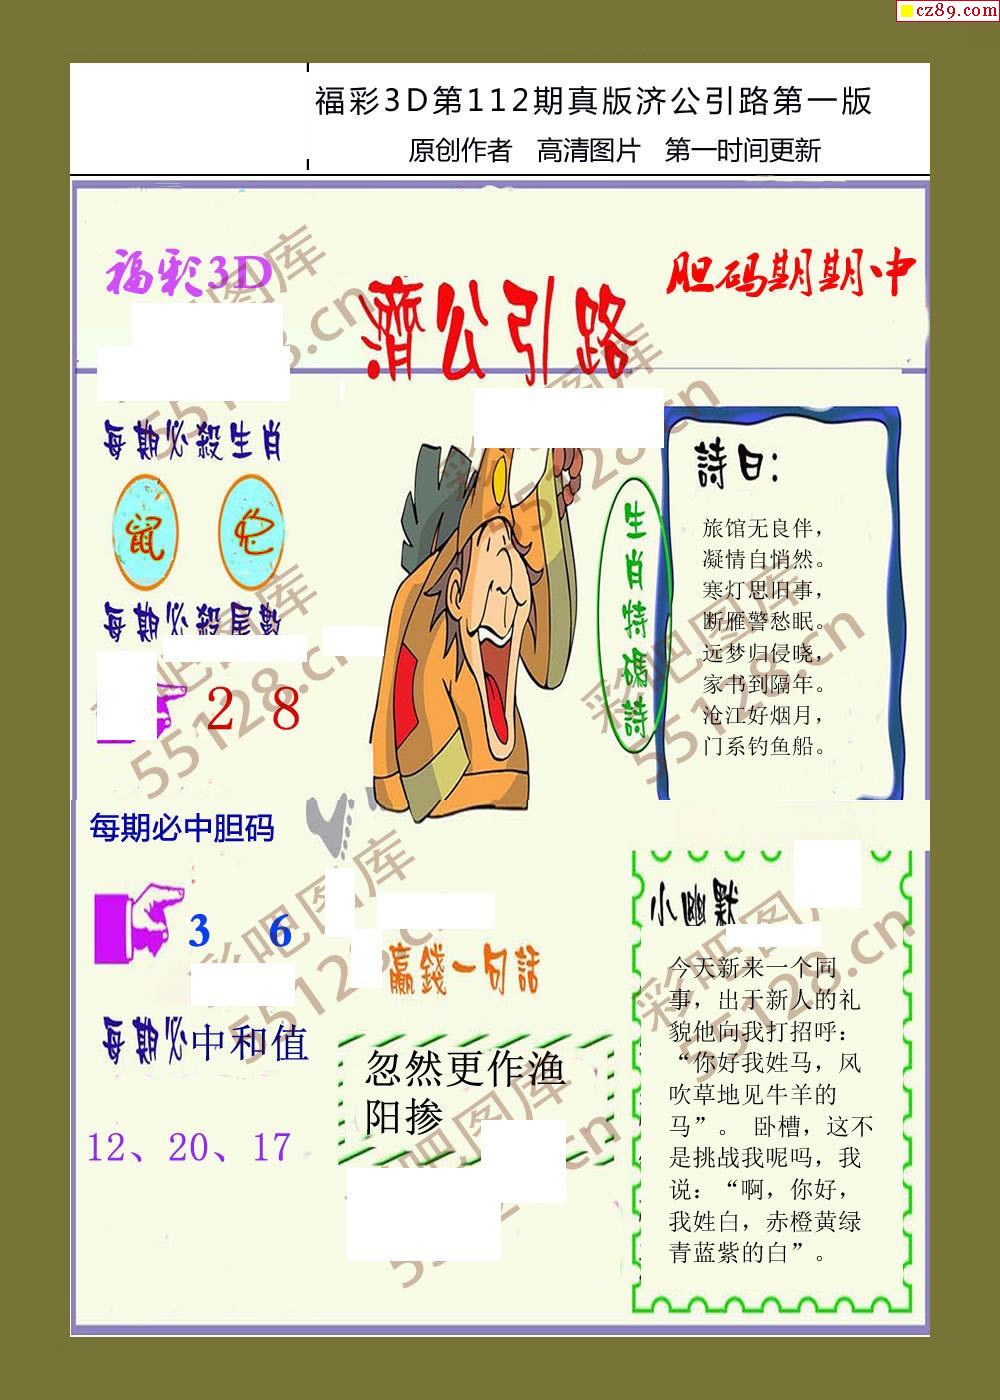 cz89.com
福彩3D第112期真版济公引路第一版
原创作者 高清图片 第一时间更新
福彩3D
濟公引路
胆码期期中
每期必殺生肖
鼠 兔
每期必殺尾數
2 8
每期必中胆码
3 6
每期必中和值
12、20、17
生肖特碼詩
詩曰:
旅馆无良伴,
凝情自悄然。
寒灯思旧事,
断雁警愁眠。
远梦归侵晓,
家书到隔年。
沧江好烟月,
门系钓鱼船。
贏錢一句話
忽然更作渔
阳掺
小幽默
今天新来一个同
事，出于新人的礼
貌他向我打招呼：
“你好我姓马，风
吹草地见牛羊的
马”。 卧槽，这不
是挑战我呢吗，我
说：“啊，你好，
我姓白，赤橙黄绿
青蓝紫的白”。
彩吧图库
55128.cn